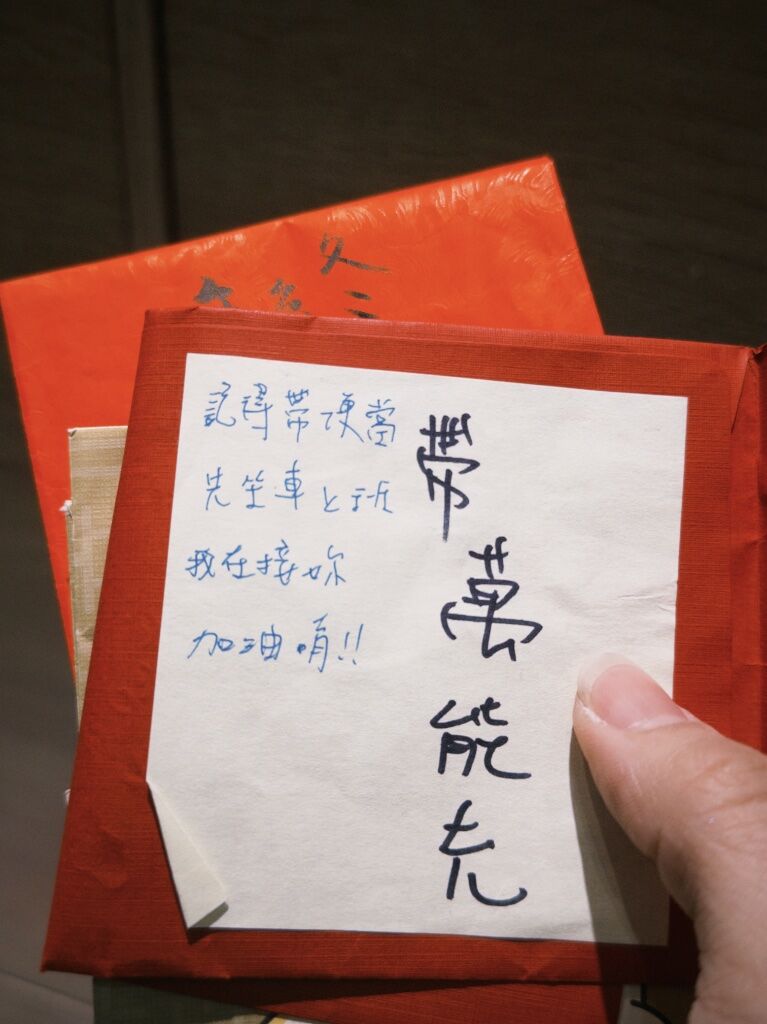 記得帶便當
先坐車上班
我在接妳
加油唷!!
帶萬能充